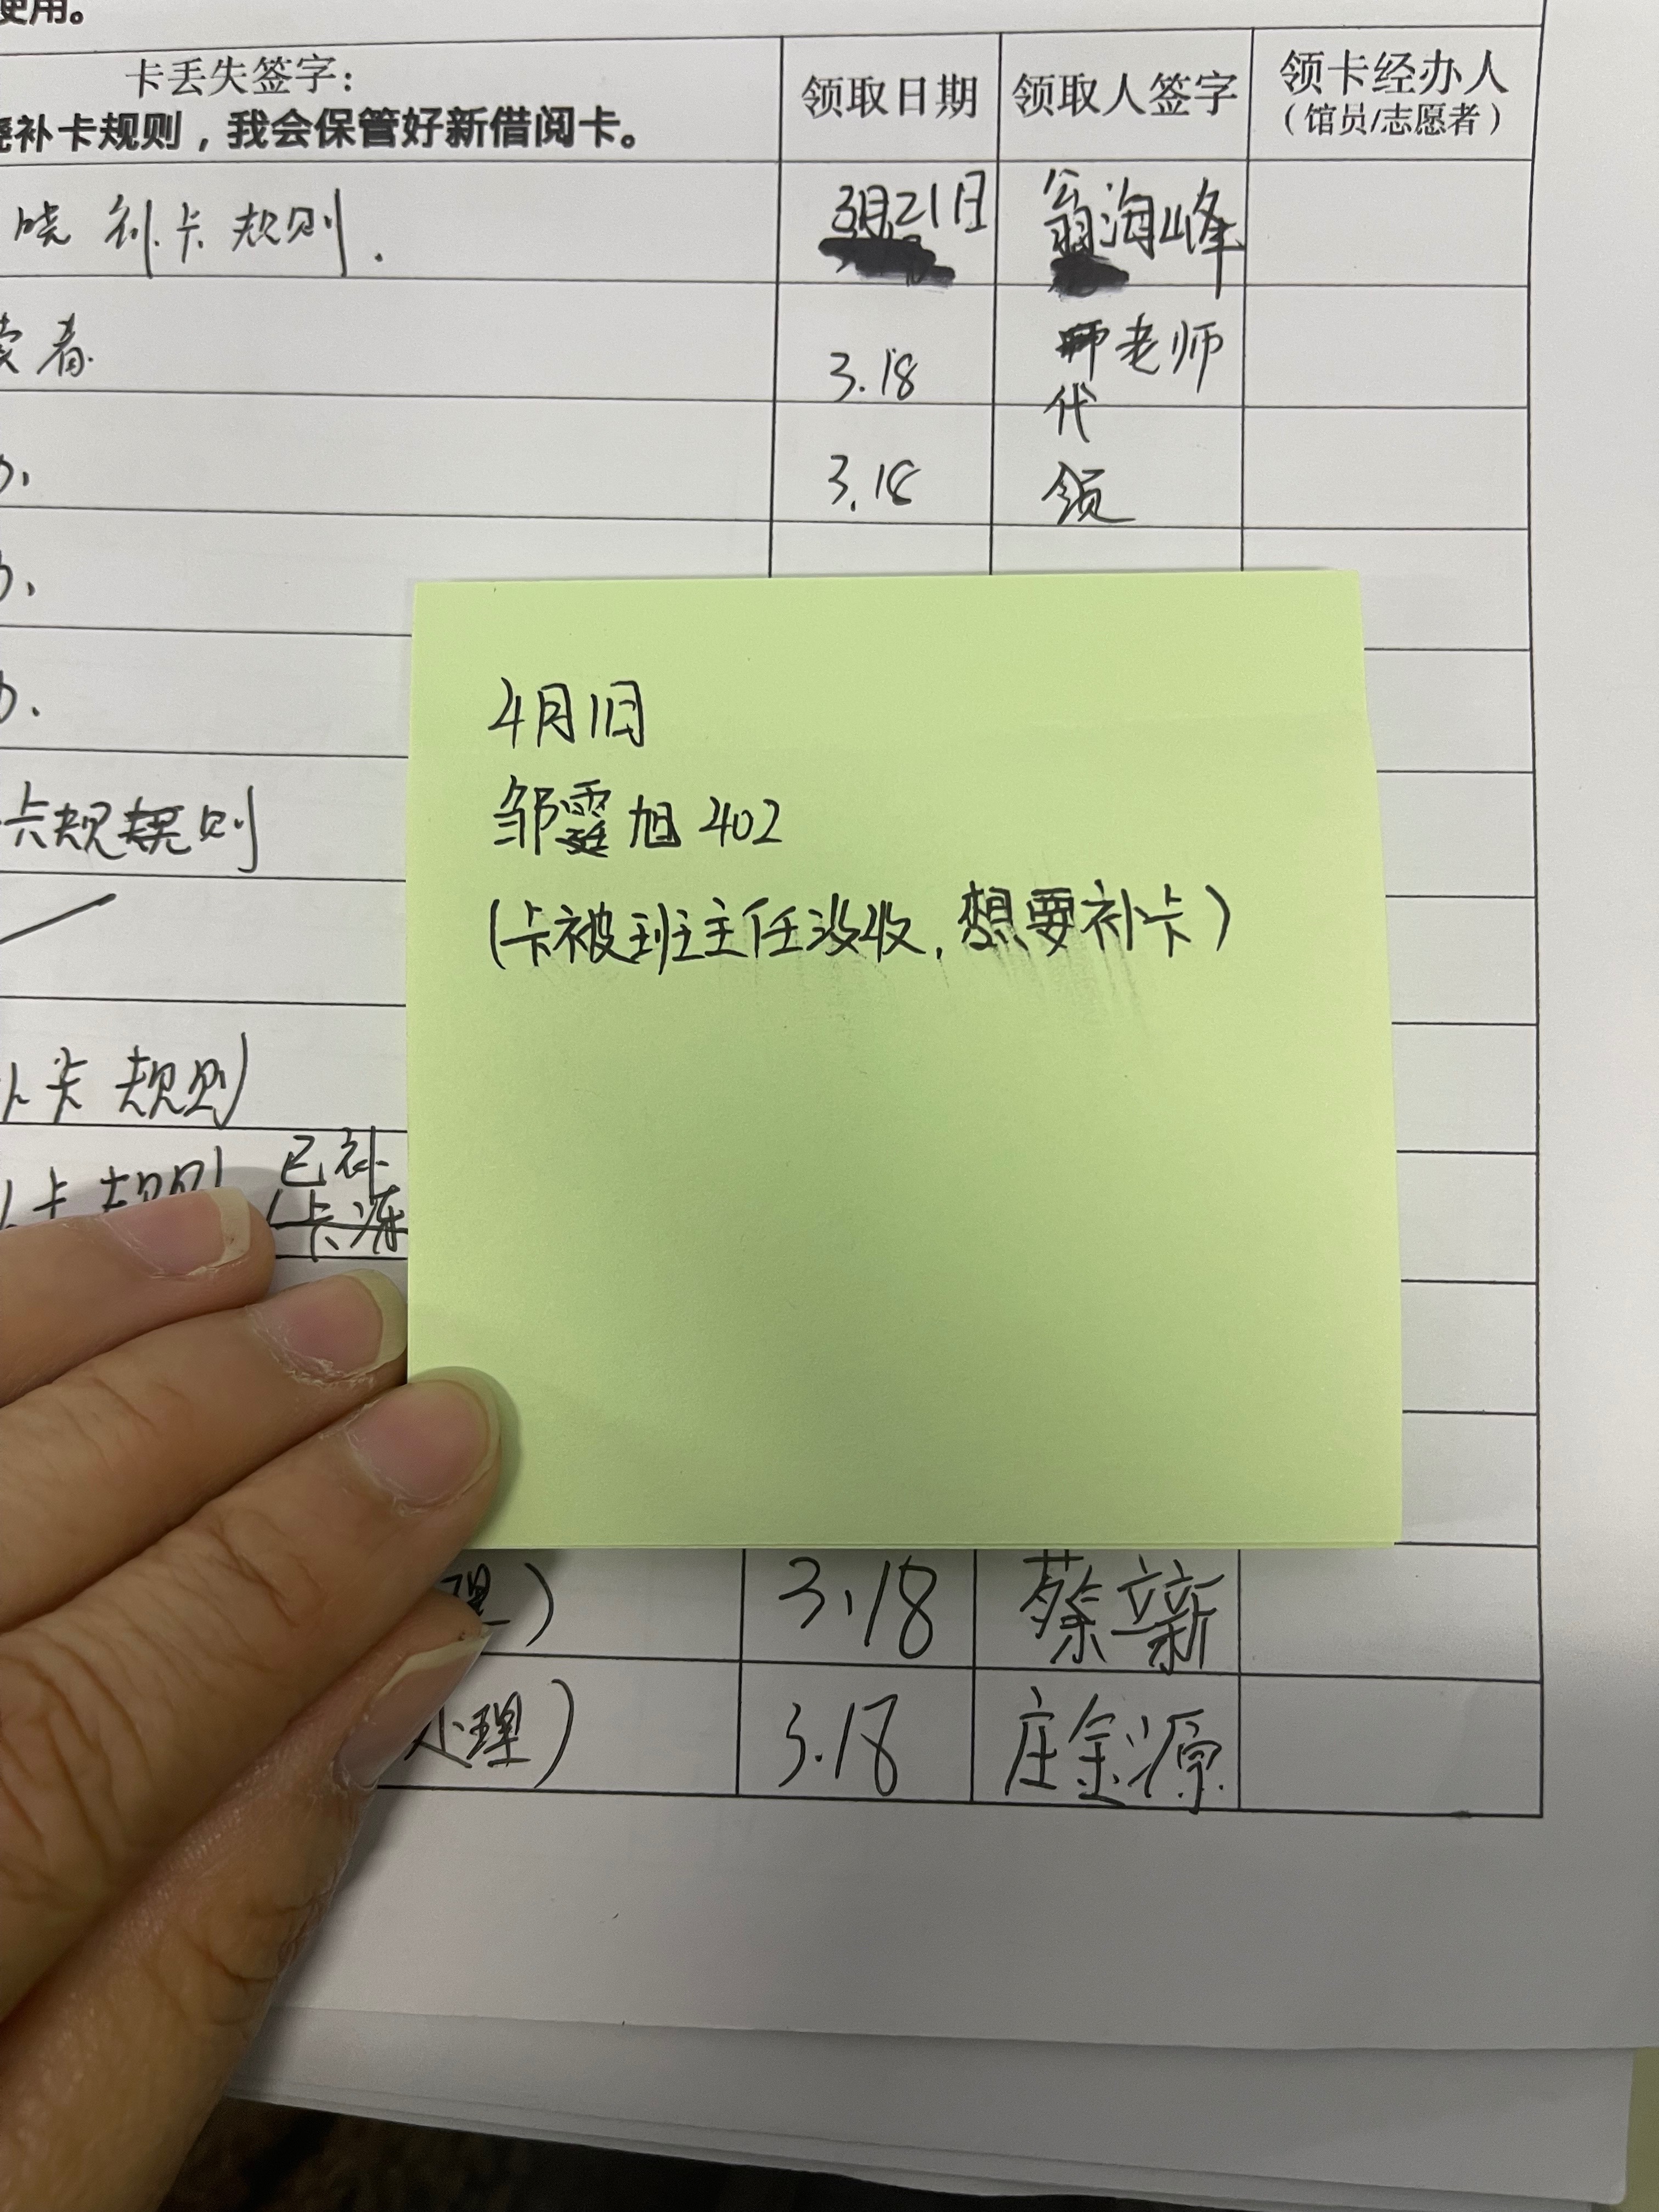 使用。
卡丢失签字：
晓补卡规则，我会保管好新借阅卡。
领取日期
领取人签字
领卡经办人
（馆员/志愿者）
晓 补卡规则.
3月21日
翁海峰
读者
3.18
老师
代
3.18
领
卡规则
补卡规则
卡规则
已补
卡添
4月1日
邹霆旭 402
(卡被班主任没收, 想要补卡)
理)
3.18
蔡立新
处理)
3.18
庄金源